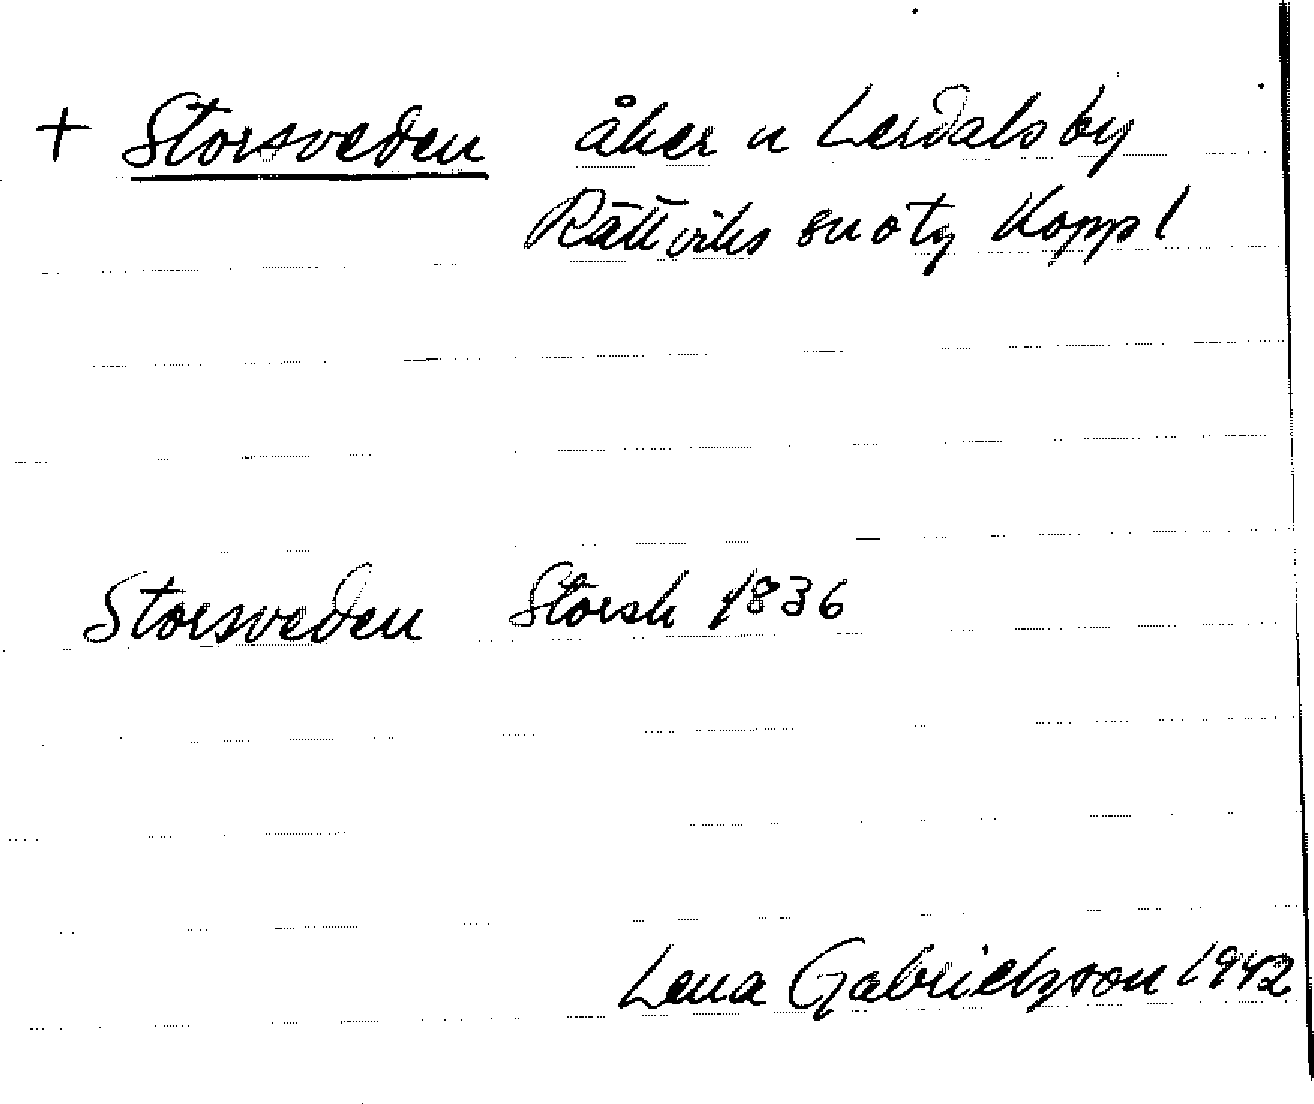 + Storsveden åker u Lerdals by
Rättviks sn o tg Kopp l
Storsveden Storsk 1836
Lena Gabrielsson 1942